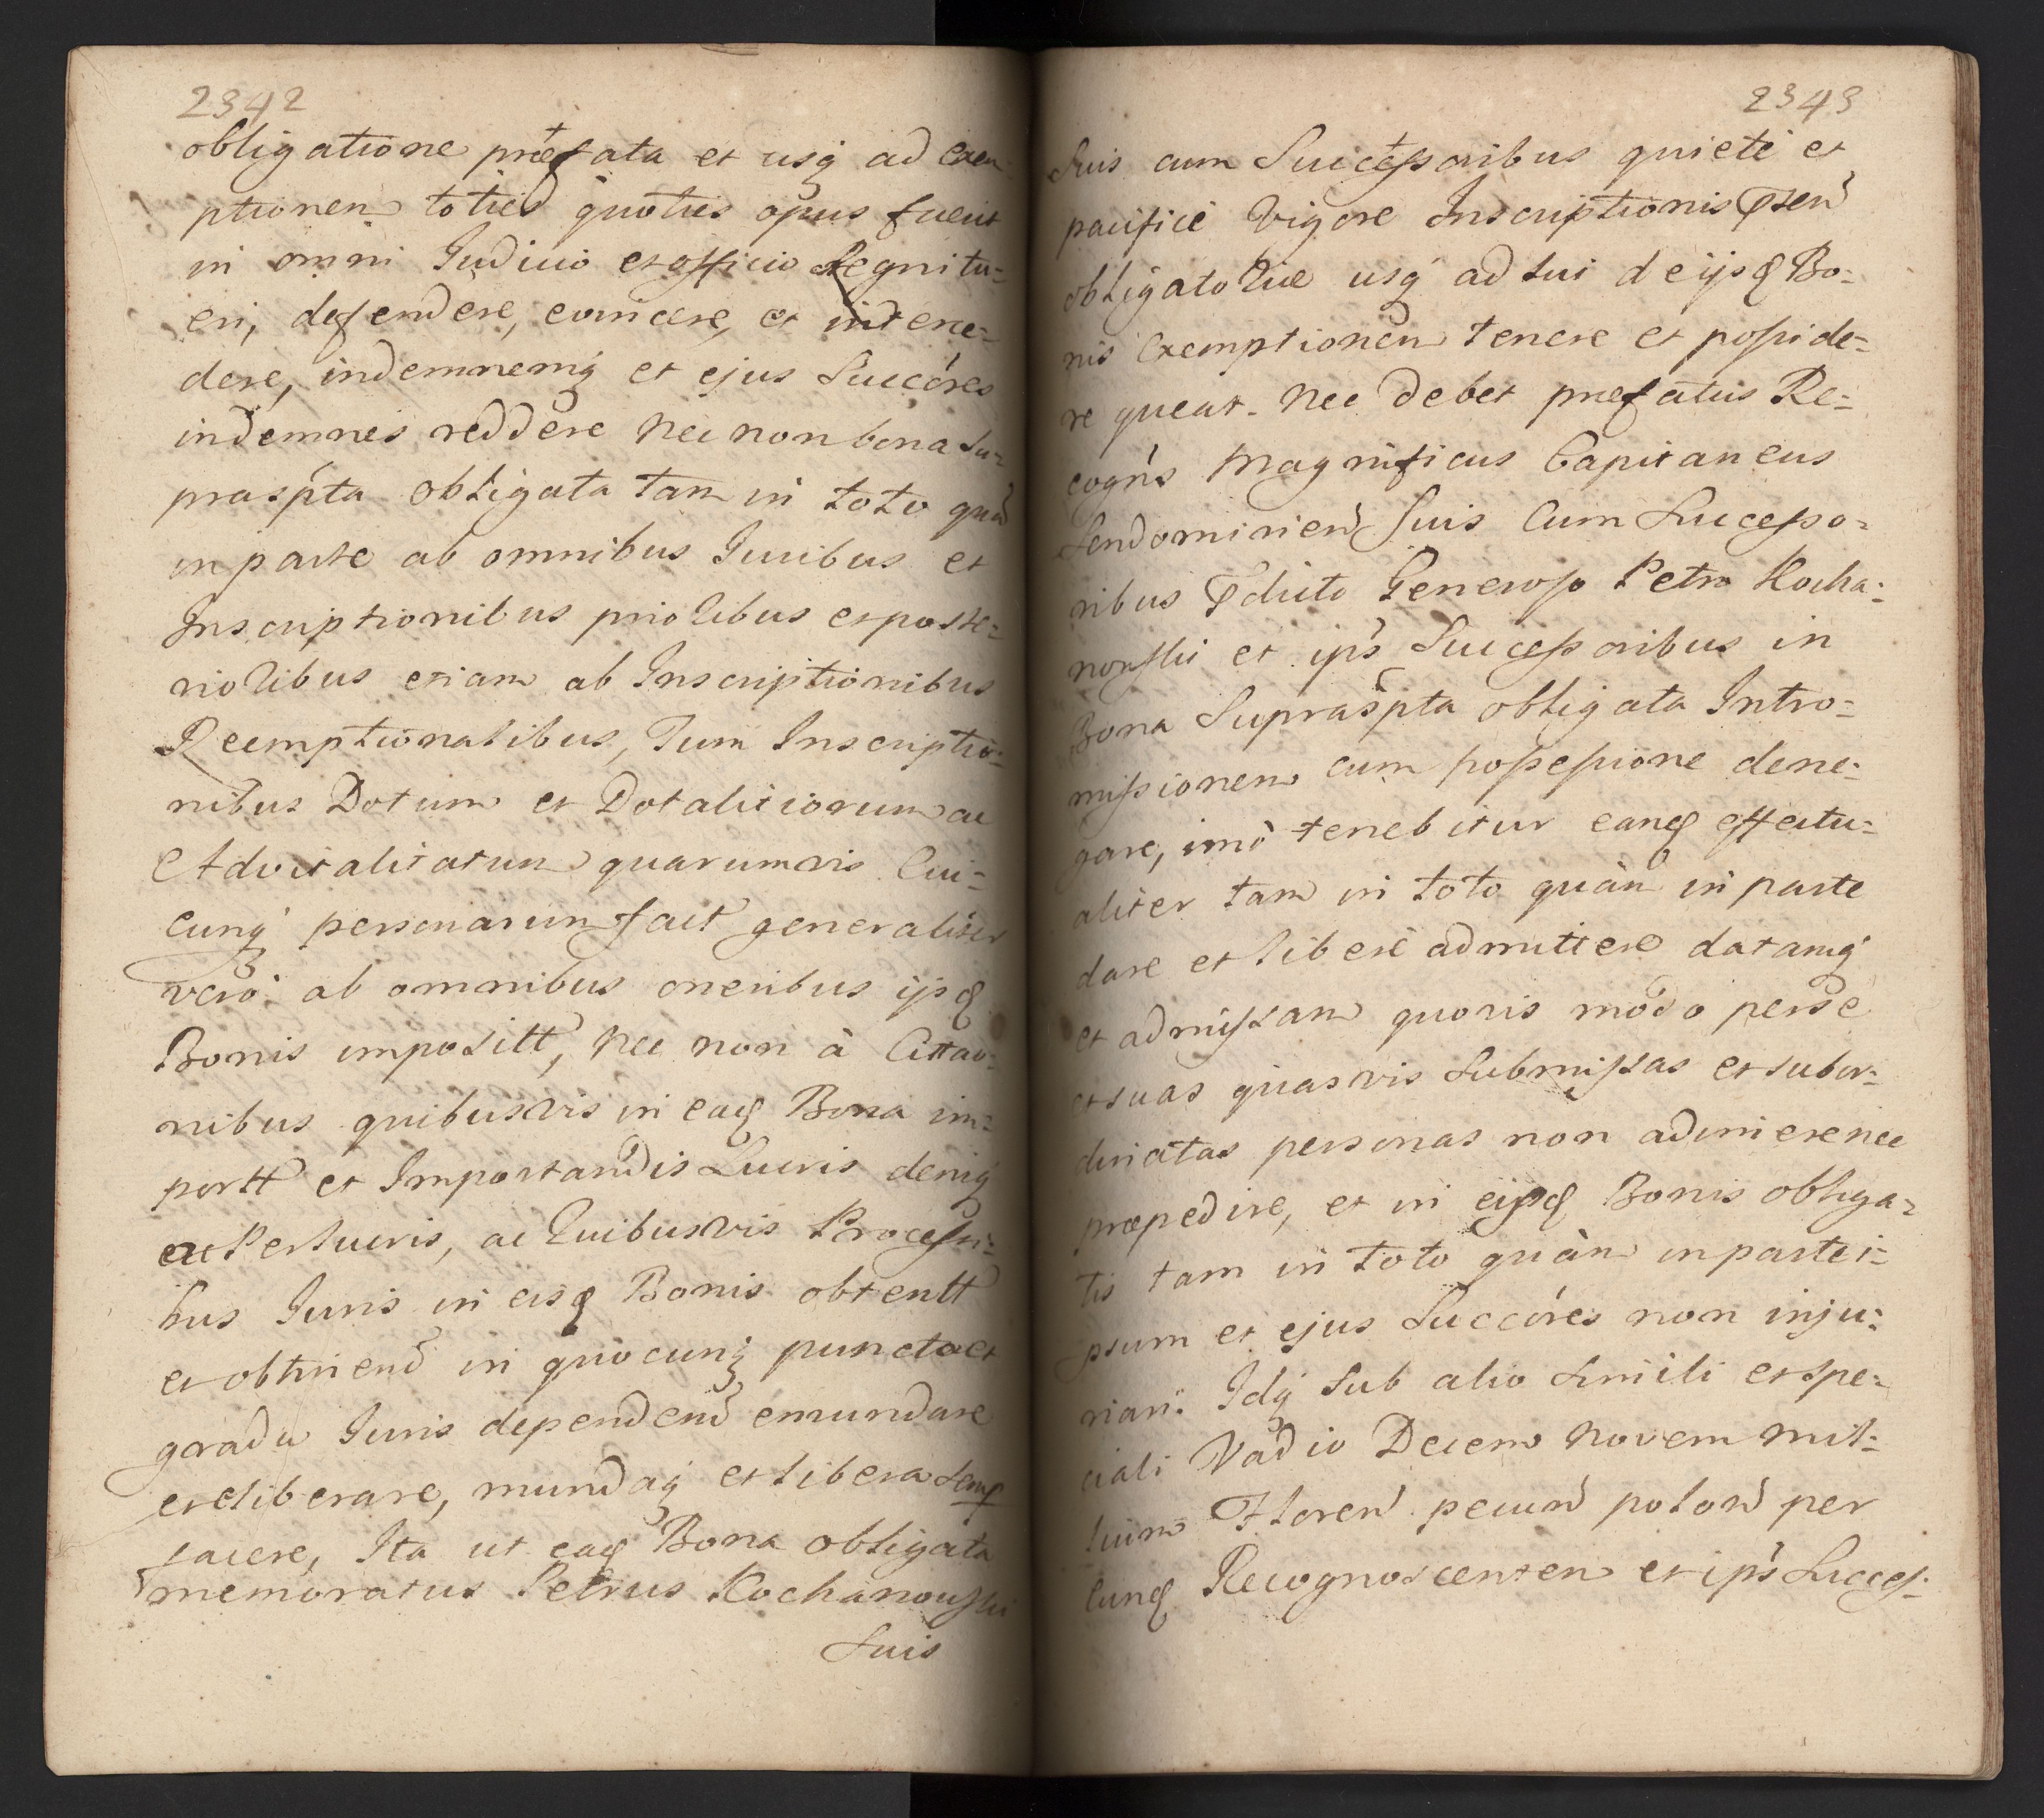 2342
obligatione præfata et usq́ ad exem
ptionem toties quoties opus fuerit
in omni Iudicio et officio Regni tu=
eri, defendere, evincere, et interce=
dere, indemnemq́ et ejus Succóres
indemnes reddere nec non bona su=
praspta obligata tam in toto quam
in parte ab omnibus Iuribus et
Inscriptionibus prioribus et poste=
rioribus etiam ab Inscriptionibus
Reemptionalibus, Tum Inscriptio=
nibus Dotum et Dotalitiorum ac
Advitalitatum quarumvis Cui=
cunq́ personarum fact generaliter
verò ab omnibus oneribus ijsq
Bonis impositt, nec non à Cittao=
nibus quibusvis in eaq Bona im=
portt et Importandis Lucris deniq́
ac Perlucris, ac Quibusvis Processi=
bus Iuris in eisq Bonis obtentt
et obtinend in quocunq́ puncto et
gradu Iuris dependend emundare
et eliberare, mundaq́ et libera semp
facere, Ita ut eaq Bona obligata
memoratus Petrus Kochanowski
Suis
2343
Suis cum Successoribus quietè et
pacificè Vigore Inscriptionis Psen
obligatoriæ usq́ ad sui de ijsq Bo=
nis exemptionem tenere et posside=
re queat. Nec debet præfatus Re=
cogns Magnificus Capitaneus
Sendomirien suis Cum Successo=
ribus Pdicto Generoso Petro Kocha=
nowski et ips Successoribus in
Bona Supraspta obligata Intro=
missionem cum possessione dene=
gare, imò tenebitur eanq effectu=
aliter tam in toto quàm in parte
dare et liberè admittere datamq́
et admissam quovis modo per se
et suas quasvis submissas et subor=
dinatas personas non adimere nec
præpedire, et in eijsq Bonis obliga=
tis tam in toto quàm in parte i=
psum et ejus Succóres non inju=
riari. Idq́ sub alio simili et spe=
ciali Vadio Decem novem mil=
lium Floren pecun polon per
eunq Recognoscentem et ips Succes=